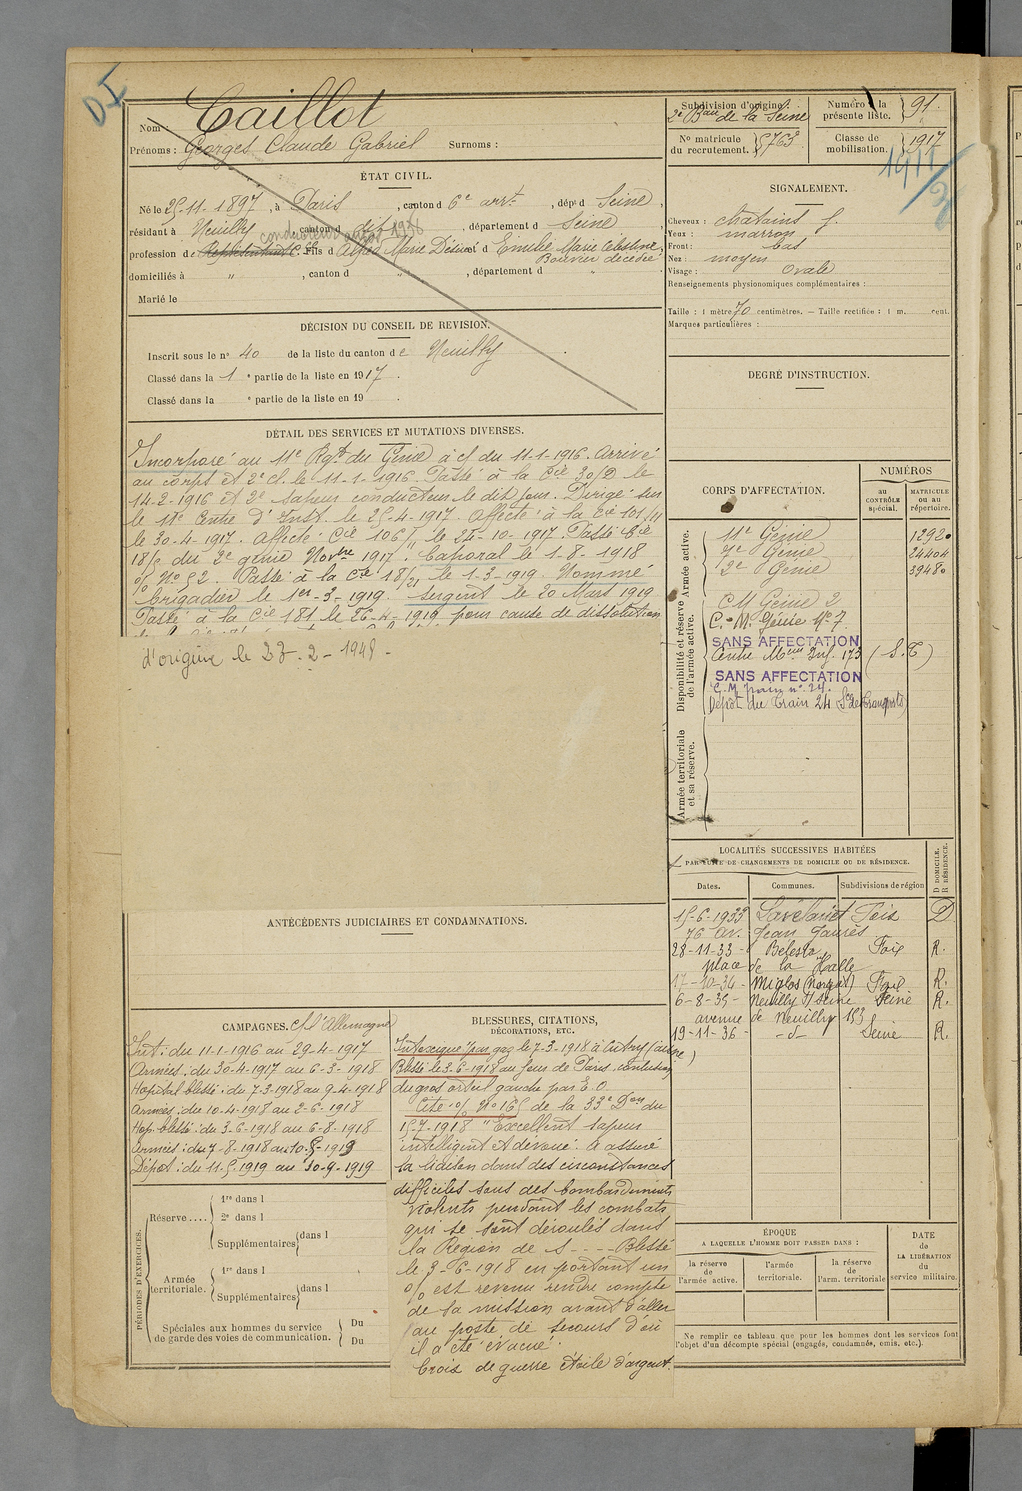 DI
Nom : Caillot
Prénoms : Georges Claude Gabriel Surnoms :
ÉTAT CIVIL.
Né le 25-11-1897, à Paris, canton d 6e arrt, dépt d Seine,
résidant à Neuilly, canton d dit, département d Seine,
conducteur autos 1936
profession de Représentant Cce Fils d Alfred Marie Désiré et d Emilie Marie Célestine
Bouvier décédée,
domiciliés à " , canton d " , département d " .
Marié le
DÉCISION DU CONSEIL DE REVISION.
Inscrit sous le no 40 de la liste du canton de Neuilly
Classé dans la 1e partie de la liste en 1917.
Classé dans la e partie de la liste en 19
DÉTAIL DES SERVICES ET MUTATIONS DIVERSES.
Incorporé au 11e Rgt du Génie à c/ du 11-1-1916. Arrivé
au corps et 2e cl. le 11-1-1916. Passé à la Cie 30/2 le
14-2-1916 et 2e sapeur conducteur le dit jour. Dirigé sur
le 11e Centre d'Inst. le 25-4-1917. Affecté à la Cie 101/11
le 30-4-1917. Affecté Cie 106/ le 24-10-1917. Passé Cie
18/ du 2e génie Novbre 1917. Caporal le 1-8-1918
o/ No 52. Passé à la Cie 18/21 le 1-3-1919. Nommé
brigadier le 1er-3-1919. Sergent le 20 Mars 1919
Passé à la Cie 181 le 26-4-1919 pour cause de dissolution
d'origine le 23-2-1948-
ANTÉCÉDENTS JUDICIAIRES ET CONDAMNATIONS.
CAMPAGNES. Ct l'Allemagne
Int: du 11-1-1916 au 29-4-1917
Armées: du 30-4-1917 au 6-3-1918
Hopital blessé: du 7-3-1918 au 9-4-1918
Armées: du 10-4-1918 au 2-6-1918
Hop. blessé: du 3-6-1918 au 6-8-1918
Armées: du 7-8-1918 au 10-5-1919
Dépôt: du 11-5-1919 au 30-9-1919
PÉRIODES D'EXERCICES.
Réserve....
1re dans l
2e dans l
Supplémentaires dans l
Armée territoriale.
1re dans l
Supplémentaires dans l
Spéciales aux hommes du service de garde des voies de communication.
Du
Du
BLESSURES, CITATIONS,
DÉCORATIONS, ETC.
Intoxiqué par gaz le 7-3-1918 à Autry (Aisne)
Blessé le 3-6-1918 au fons de Paris. contusion
du gros orteil gauche par E.O
Cité o/ No 165 de la 33e Don du
15-7-1918 "Excellent sapeur
intelligent et dévoué. a assuré
la liaison dans des circonstances
difficiles sous des bombardements
violents pendant les combats
qui se sont déroulés dans
la Région de S---- Blessé
le 3-6-1918 en portant un
o/ est revenu rendre compte
de sa mission avant d'aller
au poste de secours d'où
il a été évacué
Croix de guerre étoile d'argent.
Subdivision d'origine :
2e Bau de la Seine
Numéro de la présente liste. 91
No matricule du recrutement. 5763
Classe de mobilisation. 1917
1911/26
SIGNALEMENT.
Cheveux : chatains f
Yeux : marron
Front : bas
Nez : moyen
Visage : ovale
Renseignements physionomiques complémentaires :
Taille : 1 mètre 70 centimètres. — Taille rectifiée : 1 m. cent.
Marques particulières :
DEGRÉ D'INSTRUCTION.
CORPS D'AFFECTATION.
NUMÉROS
AU CONTRÔLE spécial.
MATRICULE ou au répertoire.
Armée active.
11e Génie 12920
7e Génie 24404
2e Génie 39480
Disponibilité et réserve de l'armée active.
CM Génie 2
C.M. Génie No 7.
SANS AFFECTATION
Centre Mon Inf. 173 (S.T)
SANS AFFECTATION
C.M train no 24.
Dépôt du Train 24 (Son de Transports)
Armée territoriale et sa réserve.
LOCALITÉS SUCCESSIVES HABITÉES
PAR SUITE DE CHANGEMENTS DE DOMICILE OU DE RÉSIDENCE.
Dates. Communes. Subdivisions de région
D DOMICILE.
R RÉSIDENCE.
15-6-1933 Lavelanet Foix D
76 av. Jean Jaurès
28-11-33 - Belesta Foix R.
place de la Halle
17-10-34 - Miglos (Norgeat) Foix R.
6-8-35 - Neuilly s/ Seine Seine R.
avenue de Neuilly 153
19-11-36 - d- Seine R.
ÉPOQUE
A LAQUELLE L'HOMME DOIT PASSER DANS :
la réserve de l'armée active.
l'armée territoriale.
la réserve de l'arm. territoriale
DATE de LA LIBÉRATION du service militaire.
Ne remplir ce tableau que pour les hommes dont les services font
l'objet d'un décompte spécial (engagés, condamnés, omis, etc.).